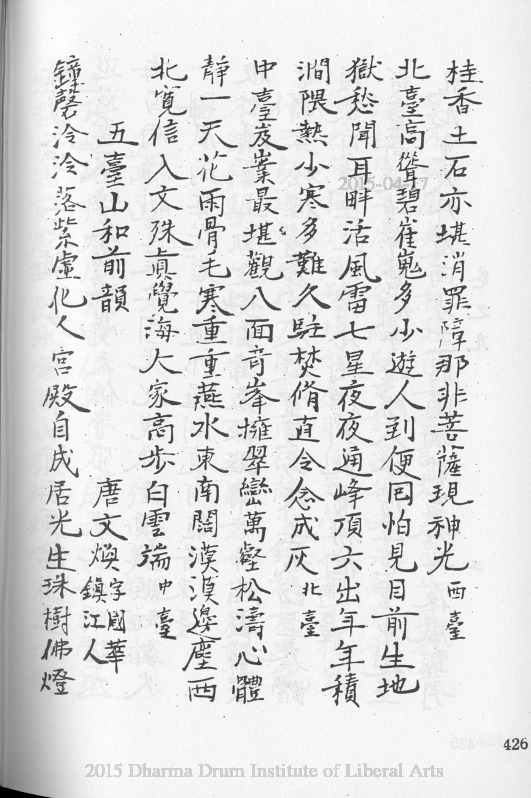 桂香土石亦堪消罪障那非菩薩現神光西臺
北臺高聳碧崔嵬多少遊人到便回怕見目前生地
獄愁聞耳畔活風雷七星夜夜通峰頂六出年年積
澗隈熱少寒多難久駐焚脩直令念成灰北臺
中臺岌嶪最堪觀八面奇峯擁翠巒萬壑松濤心體
靜一天花雨骨毛寒重重燕水東南闊漠漠邊塵西
北寬信入文殊真覺海大家高步白雲端中臺
五臺山和前韻 唐文煥字國華鎮江人
鐘磬泠泠落紫虛化人宮殿自成居光生珠樹佛燈
426
2015-04-17
2015 Dharma Drum Institute of Liberal Arts